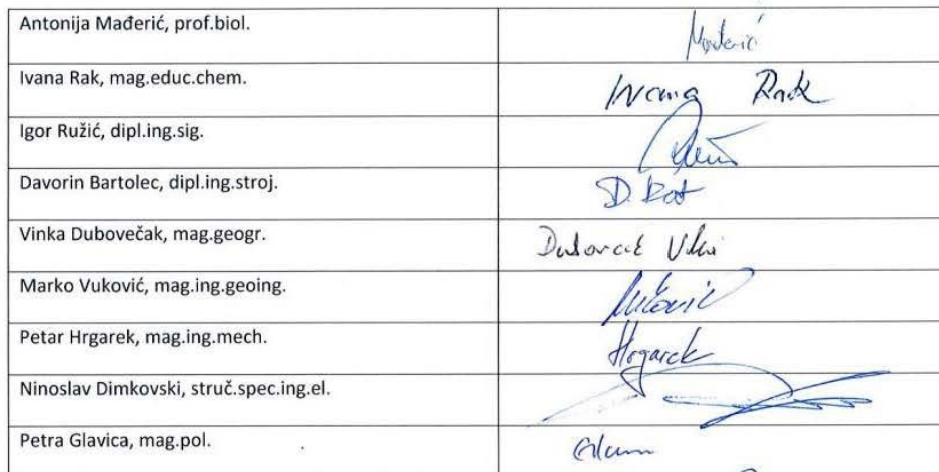 Antonija Mađerić, prof.biol. Mađerić
Ivana Rak, mag.educ.chem. Ivana Rak
Igor Ružić, dipl.ing.sig.
Davorin Bartolec, dipl.ing.stroj. D. Bat
Vinka Dubovečak, mag.geogr. Dubovečak
Marko Vuković, mag.ing.geoing. Vuković
Petar Hrgarek, mag.ing.mech. Hrgarek
Ninoslav Dimkovski, struč.spec.ing.el.
Petra Glavica, mag.pol.